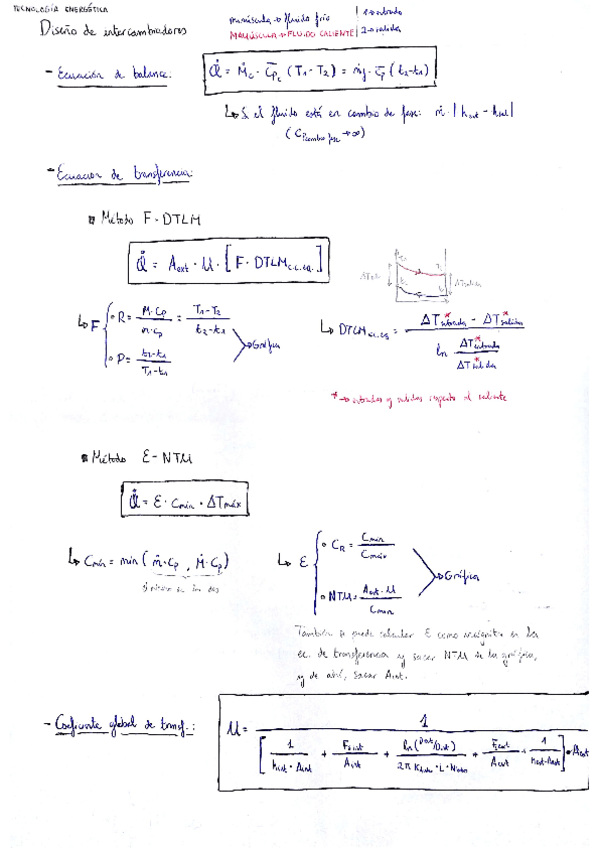 TECNOLOGÍA ENERGÉTICA
Diseño de intercambiadores
minúscula → fluido frío
MAYÚSCULA → FLUIDO CALIENTE
1 → entrada
2 → salida
- Ecuación de balance:
Q̇ = Ṁc · C̄pc (T1 - T2) = ṁf · C̄p (t2 - t1)
↳ Si el fluido está en cambio de fase: ṁ · | hent - hsal |
(Cp cambio fase → ∞)
- Ecuación de transferencia:
■ Método F-DTLM
Q̇ = Aext · U · [ F · DTLMc.c.eq. ]
↳ F { ∘ R = Ṁ·Cp / ṁ·cp = T1 - T2 / t2 - t1
∘ P = t2 - t1 / T1 - t1
→ Gráfica
↳ DTLMc.c.eq = ΔT*entrada - ΔT*salida / ln ΔT*entrada / ΔT*salida
* → entradas y salidas respecto al caliente
■ Método ε-NTU
Q̇ = ε · Cmín · ΔTmáx
↳ Cmín = min ( ṁ·cp , Ṁ·Cp )
↳ ε { ∘ CR = Cmin / Cmáx
∘ NTU = Aext · U / Cmin
→ Gráfica
También se puede calcular ε como incógnita en la
ec. de transferencia y sacar NTU de la gráfica,
y de ahí, sacar Aext.
- Coeficiente global de transf.:
U = 1 / [ 1 / hint · Aint + Fint / Aint + ln (Dext/Dint) / 2π Ktubo · L · Ntubos + Fext / Aext + 1 / hext · Aext ] · Aext